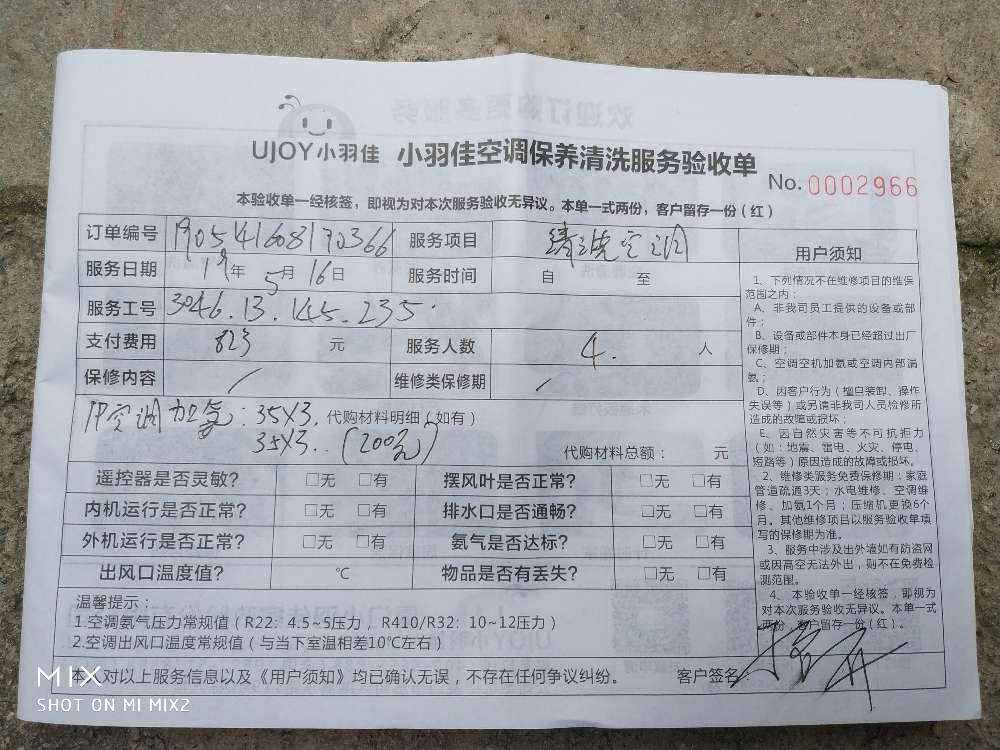 UJOY小羽佳 小羽佳空调保养清洗服务验收单
No. 0002966
本验收单一经核签，即视为对本次服务验收无异议。本单一式两份，客户留存一份（红）
订单编号 190541608170366 服务项目 清洗空调
服务日期 19年 5月 16日 服务时间 自 至
服务工号 3046.13.145.235.
支付费用 823 元 服务人数 4. 人
保修内容 / 维修类保修期 /
1P空调加氨：35X3. 代购材料明细（如有）
35X3..（200元）
代购材料总额： 元
遥控器是否灵敏？ □无 □有 摆风叶是否正常？ □无 □有
内机运行是否正常？ □无 □有 排水口是否通畅？ □无 □有
外机运行是否正常？ □无 □有 氨气是否达标？ □无 □有
出风口温度值？ ℃ 物品是否有丢失？ □无 □有
温馨提示：
1.空调氨气压力常规值（R22：4.5~5压力，R410/R32：10~12压力）
2.空调出风口温度常规值（与当下室温相差10℃左右）
本人对以上服务信息以及《用户须知》均已确认无误，不存在任何争议纠纷。 客户签名：
用户须知
1、下列情况不在维修项目的维保
范围之内：
A、非我司员工提供的设备或部
件；
B、设备或部件本身已经超过出厂
保修期；
C、空调空机加氨或空调内部漏
氨；
D、因客户行为（擅自装卸、操作
失误等）或另请非我司人员检修所
造成的故障或损坏；
E、因自然灾害等不可抗拒力
（如：地震、雷电、火灾、停电、
短路等）原因造成的故障或损坏。
2、维修类服务免费保修期：家庭
管道疏通3天；水电维修、空调维
修、加氨1个月；压缩机更换6个
月。其他维修项目以服务验收单填
写的保修期为准。
3、服务中涉及出外墙如有防盗网
或因高空无法外出，则不在免费检
测范围。
4、本验收单一经核签，即视为
对本次服务验收无异议。本单一式
两份，客户留存一份（红）。
MIX
SHOT ON MI MIX2